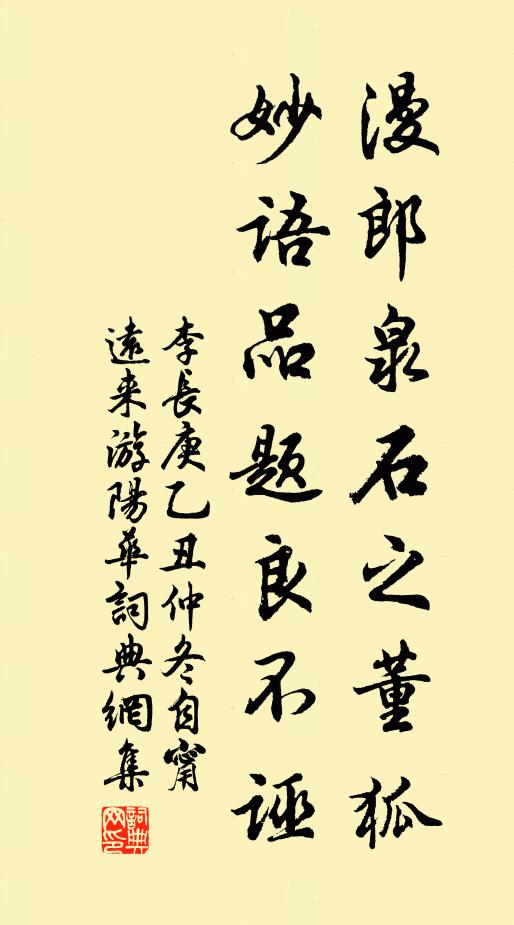 漫郎泉石之董狐
妙语品题良不诬
李長庚乙丑仲冬自甯
遠来游陽華詞典網集
詞典
网印